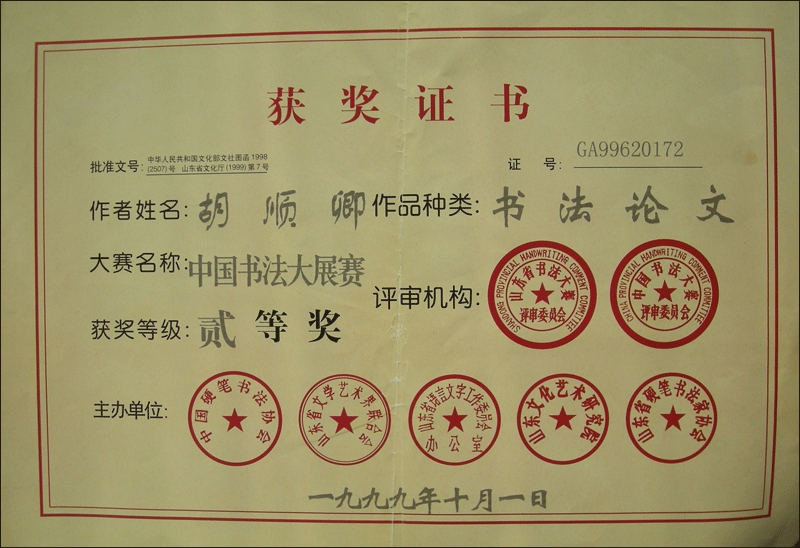 获奖证书
批准文号: 中华人民共和国文化部文社图函1998
(2507)号 山东省文化厅(1999)第7号
证 号: GA99620172
作者姓名: 胡顺卿 作品种类: 书法论文
大赛名称: 中国书法大展赛
评审机构:
山东省书法大赛
评审委员会
SHANDONG PROVINCIAL HANDWRITING COMMENT COMMITTEE
中国书法大赛
评审委员会
CHINA PROVINCIAL HANDWRITING COMMENT COMMITTEE
获奖等级: 贰等奖
主办单位:
中国硬笔书法协会
山东省文学艺术界联合会
山东省语言文字工作委员会
办公室
山东文化艺术研究院
山东省硬笔书法家协会
一九九九年十月一日